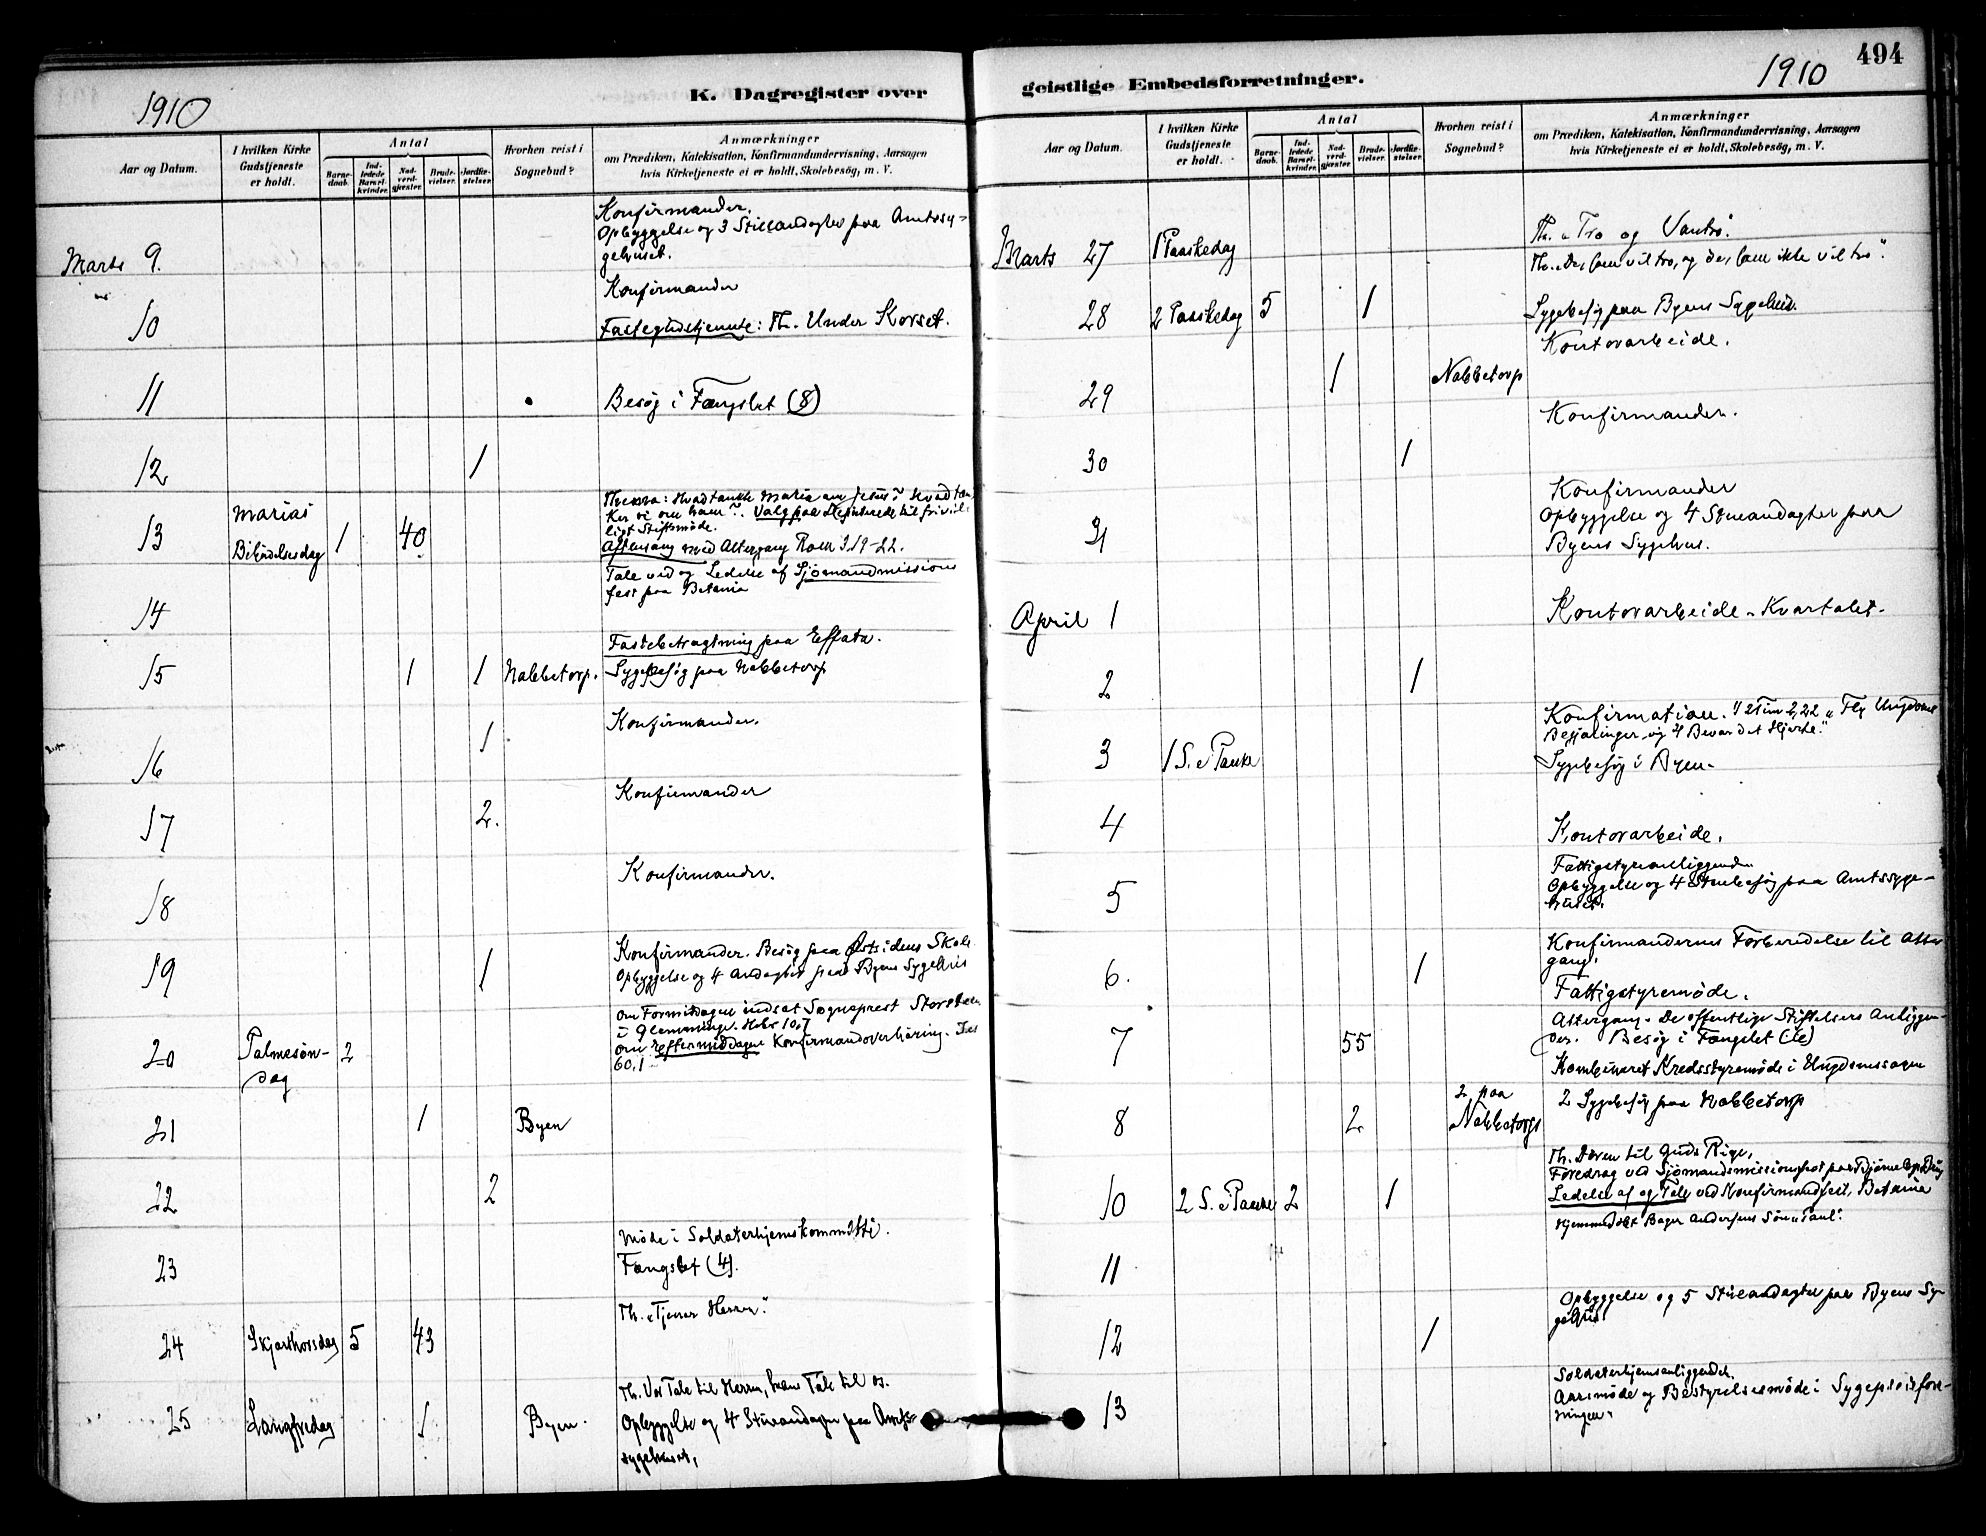 1910
K. Dagregister over
Aar og Datum.
I hvilken Kirke
Gudstjeneste
er holdt.
Antal
Barne-
daab.
Ind-
ledede
Barsel-
kvinder.
Nad-
verd-
gjester
Brude-
vielser.
Jordfæ-
stelser.
Hvorhen reist i
Sognebud?
Anmærkninger
om Prædiken, Katekisation, Konfirmandundervisning, Aarsagen
hvis Kirketjeneste ei er holdt, Skolebesøg, m. V.
Marts 9.
Konfirmander.
Opbyggelse og 3 Stueandagter paa Amtssy-
gehuset.
10
Konfirmander
Fastegudstjeneste: Th. Under Korset.
11
Besøg i Fængslet (8)
12 1
13 Marias
Bebudelsesdag 1 40
Thema: Hvad tænkte Maria om Jesus? Hvad tæn
ker vi om ham? Valg paa til frivil
ligt Stiftsmøde.
Aftensang med Altergang Rom 3.19-22.
14
Tale ved og Ledelse af Sjømandmissions
fest paa Betania
15 1 1 Nabbetorp.
Fastebetragtning paa Effata.
Sygebesøg paa Nabbetorp
16 1
Konfirmander.
17 2.
Konfirmander
18
Konfirmander.
19 1
Konfirmander. Besøg paa Østsidens Skole
Opbyggelse og 4 Andagter paa Byens Sygehus
20 Palmesøn-
dag 2
om Formiddagen indsat Sogneprest
i Glemminge. Hebr 10,7
om Eftermiddagen Konfirmandoverhøring. Jes
60,1
21 1 Byen
22 2
23
Møde i Soldaterhjemskommitté.
Fængslet (4).
24 Skjærthorsdag 5 43
Th. "Tjener Herren".
25 Langfredag 1 Byen.
Th. Vor Tale til Herren, hans Tale til os.
Opbyggelse og 4 Stueandagter paa Amts-
sygehuset.
494
1910
geistlige Embedsforretninger.
Aar og Datum.
I hvilken Kirke
Gudstjeneste
er holdt.
Antal
Barne-
daab.
Ind-
ledede
Barsel-
kvinder.
Nad-
verd-
gjester
Brude-
vielser.
Jordfæ-
stelser.
Hvorhen reist i
Sognebud?
Anmærkninger
om Prædiken, Katekisation, Konfirmandundervisning, Aarsagen
hvis Kirketjeneste ei er holdt, Skolebesøg, m. V.
Marts 27 1 Paaskedag
Th. "Tro og Vantro".
Th. "De, som vil tro, og de, som ikke vil tro".
28 2 Paaskedag 5 1
Sygebesøg paa Byens Sygehus.
Kontorarbeide.
29 1 Nabbetorp
Konfirmander.
30 1
31
Konfirmander
Opbyggelse og 4 Stueandagter paa
Byens Sygehus.
April 1
Kontorarbeide - Kvartalet.
2 1
3 1 S. e Paaske
Konfirmation. 1) 2 Tim 2,22 "Fly Ungdoms
Begjæringer og 2) Bevar det Hjerte".
Sygebesøg i Byen.
4
Kontorarbeide.
5
Fattigstyreanliggender
Opbyggelse og 4 Stuebesøg paa Amtssyge-
huset.
6. 1
Konfirmandernes Forberedelse til Alter
gang.
Fattigstyremøde.
7 55
Altergang. De offentlige Stiftelsers Anliggen-
der. Besøg i Fængslet
Kombineret Kredsstyremøde i Ungdomssagen
8 2 2 paa
Nabbetorp
2 Sygebesøg paa Nabbetorp
10 2 S. e Paaske 2 1
Th. Døren til Guds Rige.
Foredrag ved Sjømandsmissionsfest paa
Ledelse af og Tale ved Konfirmandfest, Betania
Hjemmedøbt Bager Andersens Søn "Paul".
11
12 1
Opbyggelse og 5 Stueandagter paa Byens Sy-
gehus
13
Soldaterhjemsanliggender.
Aarsmøde og Bestyrelsesmøde i Sygepleiefore-
ningen.